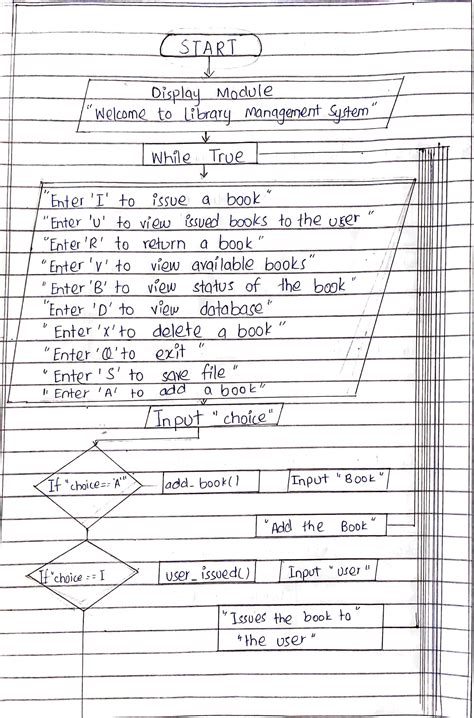 START
Display Module
"Welcome to Library Management System"
While True
"Enter 'I' to issue a book"
"Enter 'U' to view issued books to the user"
"Enter 'R' to return a book"
"Enter 'V' to view available books"
"Enter 'B' to view status of the book"
"Enter 'D' to view database"
"Enter 'X' to delete a book"
"Enter 'Q' to exit"
"Enter 'S' to save file"
"Enter 'A' to add a book"
Input "choice"
If "choice=='A'" add_book() Input "Book"
"Add the Book"
If "choice == I user_issued() Input "user"
"Issues the book to"
"the user"